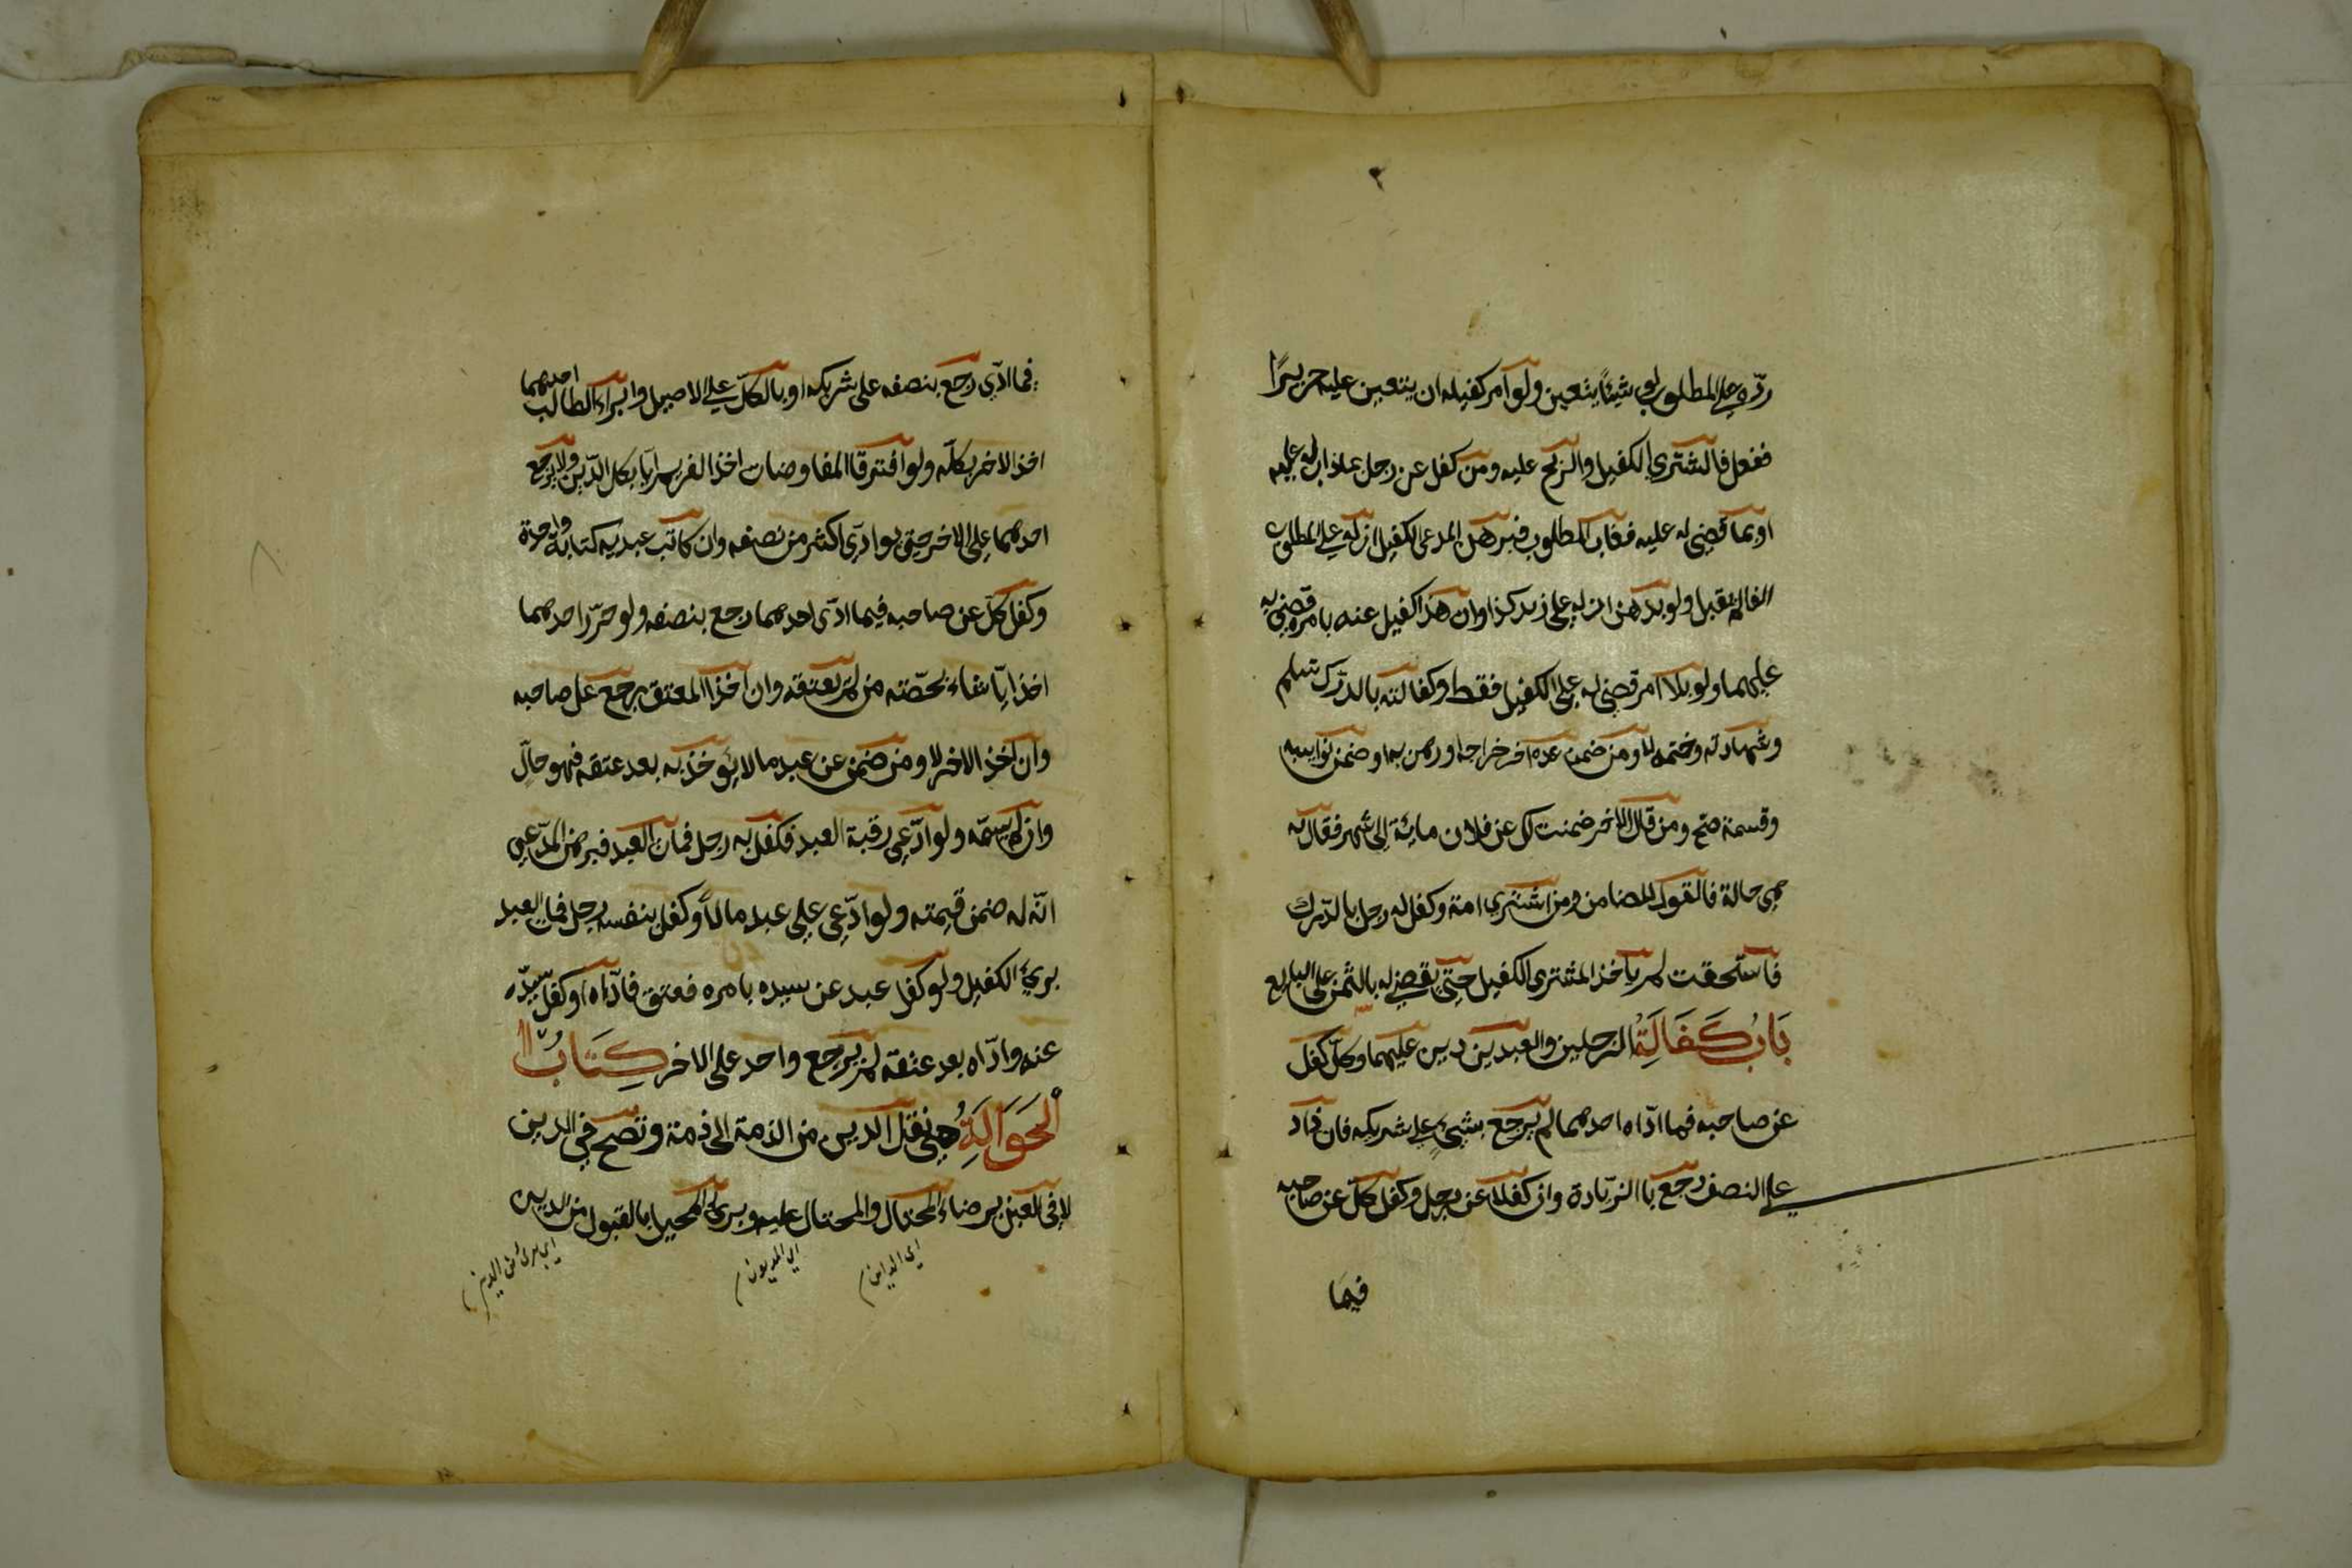 ردّه علي المطلوب لو شيئًا يتعين ولو امر كفيله ان يتعين عليه حريرًا
ففعل فالشتري للكفيل والربح عليه ومن كفل عن رجل بماذاب له عليه
او بما قضي له عليه فغاب المطلوب فبرهن المدعي علي الكفيل ان له علي المطلوب
الفا لم يقبل ولو برهن ان له علي زيد كذا وان هذا كفيل عنه بامره قضي به
عليهما ولو بلا امر قضي له علي الكفيل فقط وكفالته بالدّرك تسلم
وشهادته وختمه لا ومن ضمن عن اخر خراجه او رهن به او ضمن نوايبه
وقسمته صح ومن قال لاخر ضمنت لك عن فلان مايئة الى شهر فقال به
هي حالة فالقول للضامن ومن اشتري امة وكفل له رجل بالدّرك
فاستحقت لم ياخذ المشتري الكفيل حتي يقضي له بالثمن علي البايع
بَابُ كَفَالَةِ الرجلين والعبدين دين عليهما وكلّ كفل
عن صاحبه فما ادّاه احدهما لم يرجع بشيءٍ علي شريكه فان زاد
علي النصف رجع با الزيادة وان كفلا عن رجل وكفل كلّ عن صاحبه
فيما
فما ادّي رجع بنصفه على شريكه او بالكلّ علي الاصيل وان ابراء الطالب احدهما
اخذ الاخر بكلّه ولو افترقا المفاوضان اخذ الغريم ايّا بكل الدّين ولا يرجع
احدهما علي الاخر حتي يوادّي اكثر من نصفه وان كاتب عبديه كتابة واحدة
وكفل كلّ عن صاحبه فيما ادّى احدهما رجع بنصفه ولو حرّر احدهما
اخذ ايّا شاء بحصّته من لم يعتقه وان اخذ المعتق يرجع على صاحبه
وان اخذ الاخر لا ومن ضمن عن عبد مالا يؤخذ به بعد عتقه فهو حالّ
وان لم يسمّه ولو ادّعي رقبة العبد فكفل به رجل فمات العبد فبرهن المدّعي
انّه له ضمن قيمته ولو ادّعي علي عبد مالاً وكفل بنفسه رجل فمات العبد
بريءَ الكفيل ولو كفل عبد عن سيده بامره فعتق فادّاه او كفل سيّده
عنه وادّاه بعد عتقه لم يرجع واحد على الاخر كِتَابُ
الحَوَالَةِ هي نقل الدين من الذمة الى ذمة وتصح في الدين
لا في العين برضاء المحتال والمحتال عليه وبرئ المحيل بالقبول من الدين
اي الداين
اي المديون
اي برئ من الدين